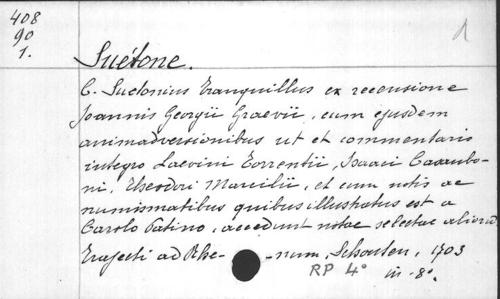 408
90
1.
1
Suétone.
C. Suetonius Tranquillus ex recensione
Joannis Georgii Graevii, cum ejusdem
animadversionibus ut et commentario
integro Laevini Torrentii, Isaaci Casaubo-
ni, Theodori Marcilii, et cum notis ac
numismatibus quibus illustratus est a
Carolo Patino, accedunt notae selectae aliorū,
Trajecti ad Rhe-num, Schouten, 1703
in-8°.
RP 4°